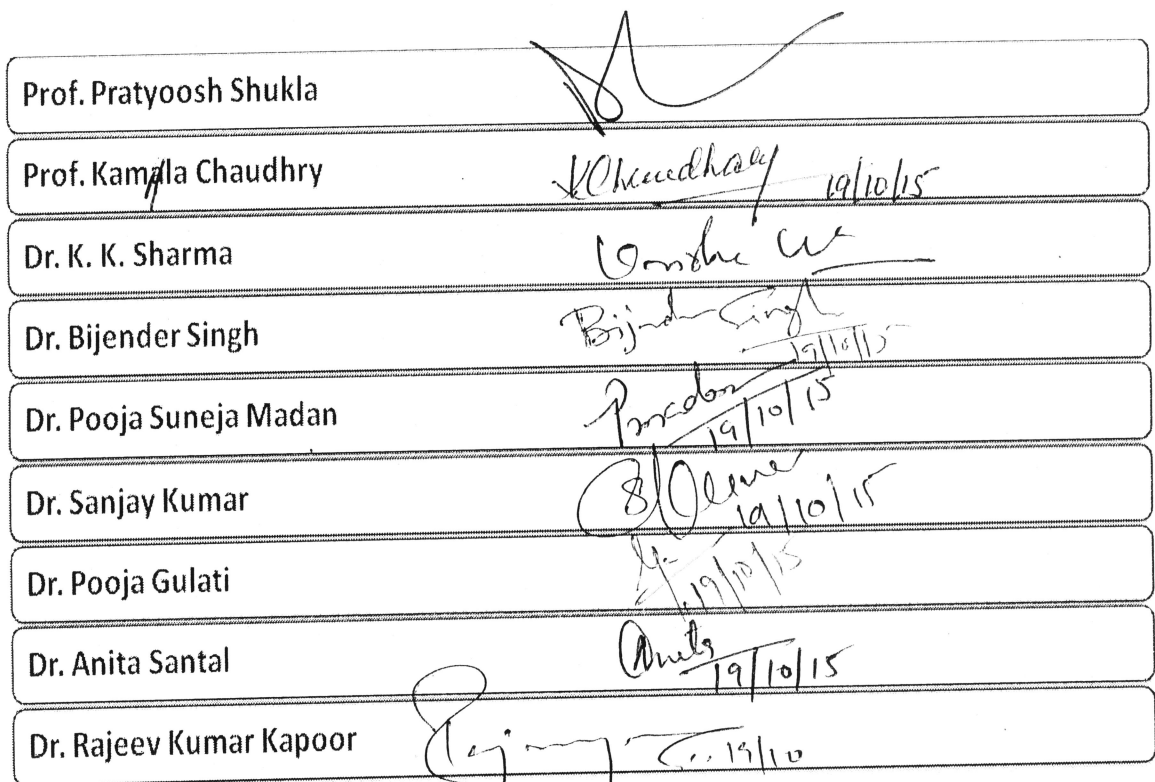 Prof. Pratyoosh Shukla
Prof. Kamla Chaudhry KChaudhary 19/10/15
Dr. K. K. Sharma
Dr. Bijender Singh Bijender Singh 19/10/15
Dr. Pooja Suneja Madan 19/10/15
Dr. Sanjay Kumar 19/10/15
Dr. Pooja Gulati 19/10/15
Dr. Anita Santal Anita 19/10/15
Dr. Rajeev Kumar Kapoor 19/10